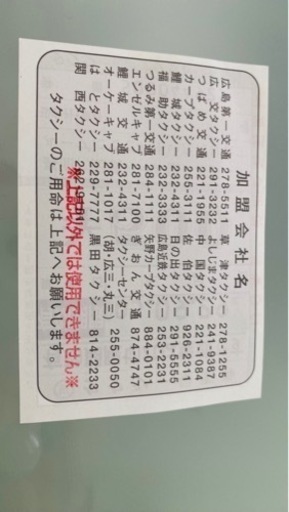 加盟会社名
広島第一交通 278-5511 草津タクシー 278-1255
広交タクシー 291-3232 よしじまタクシー 241-9387
つばめ交通 221-1955 中国タクシー 221-1084
カープタクシー 255-3111 佐伯タクシー 926-2311
鯉城タクシー 232-4311 日の出タクシー 291-5555
福助タクシー 232-3333 広島近鉄タクシー 253-2231
つるみ第一交通 284-1111 矢野カープタクシー 884-0101
エンゼルキャブ 281-7100 ぎおん交通 874-4747
鯉城交通 232-4311 タクシーセンター 255-0050
オーケーキャブ 281-1017 (胡・広三・丸三)
はとタクシー 229-7777 黒田タクシー 814-2233
関西タクシー
※上記以外では使用できません※
タクシーのご用命は上記へお願いします。